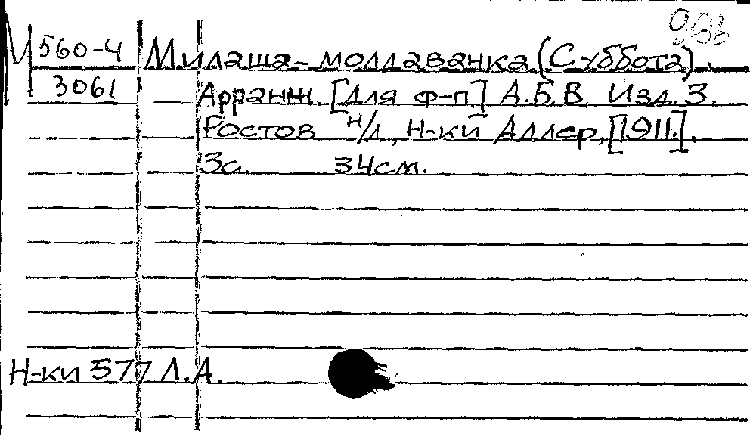 М 560-4 Милаша-молдаванка (Суббота).
3061 Арранж. [для ф-п] А.Б.В. Изд. 3.
Ростов н/Д, Н-ки Адлер, [1911].
3с. 34см.
Н-ки 577 Л.А.